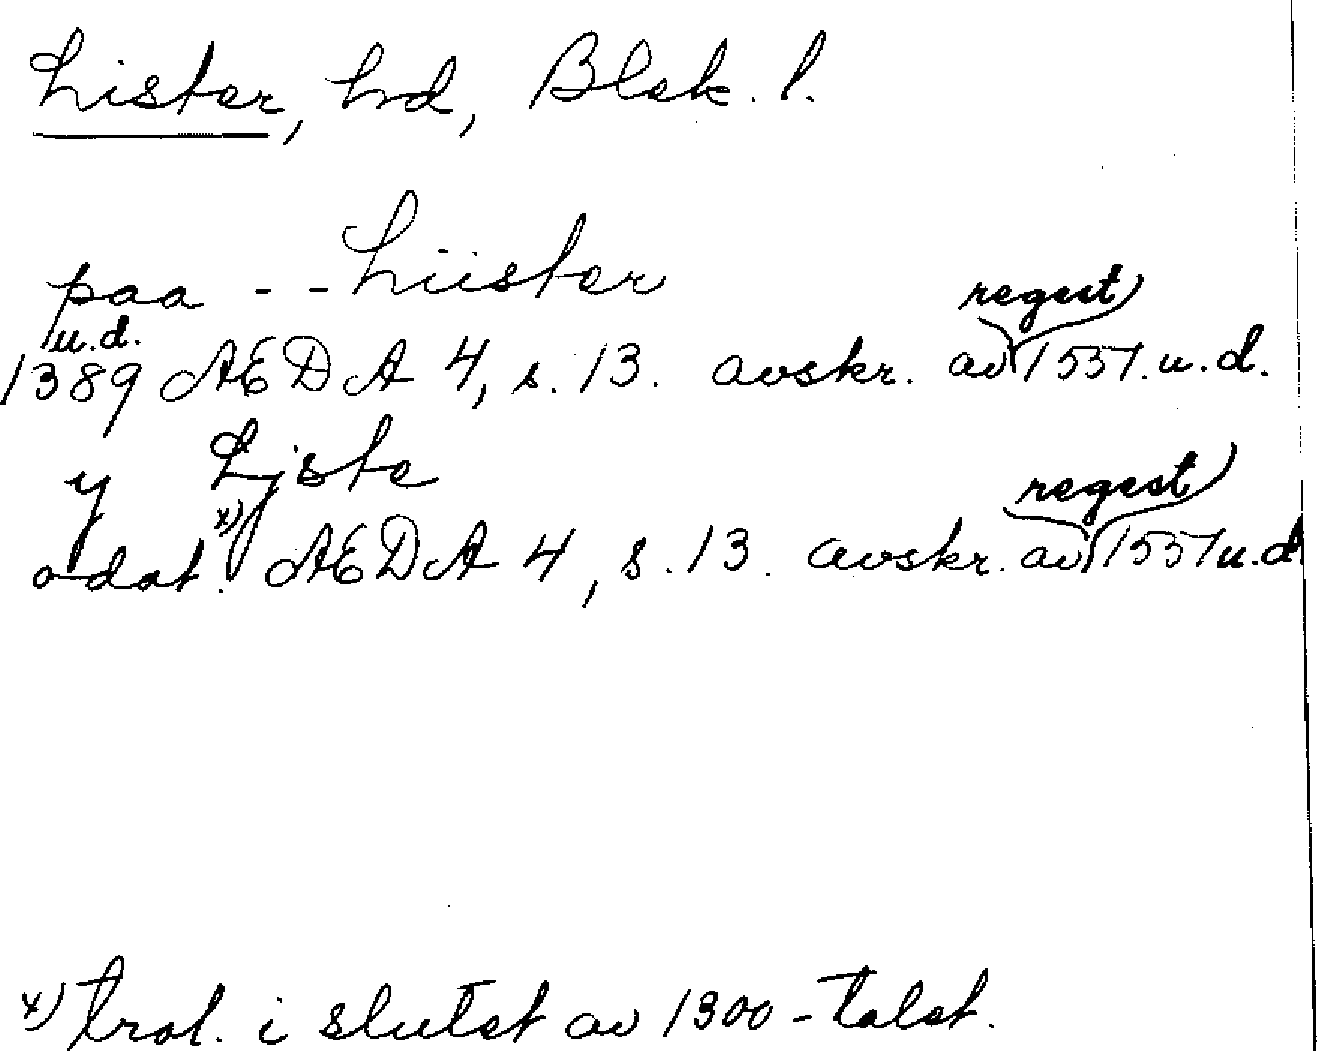 Lister, hd, Blek. l.
paa - - Liister
u.d. regest
1389 AEDA 4, s. 13. avskr. av 1551. u.d.
y Liste regest
odat. x) AEDA 4, s. 13. avskr. av 1551 u.d
x) trol. i slutet av 1300-talet.